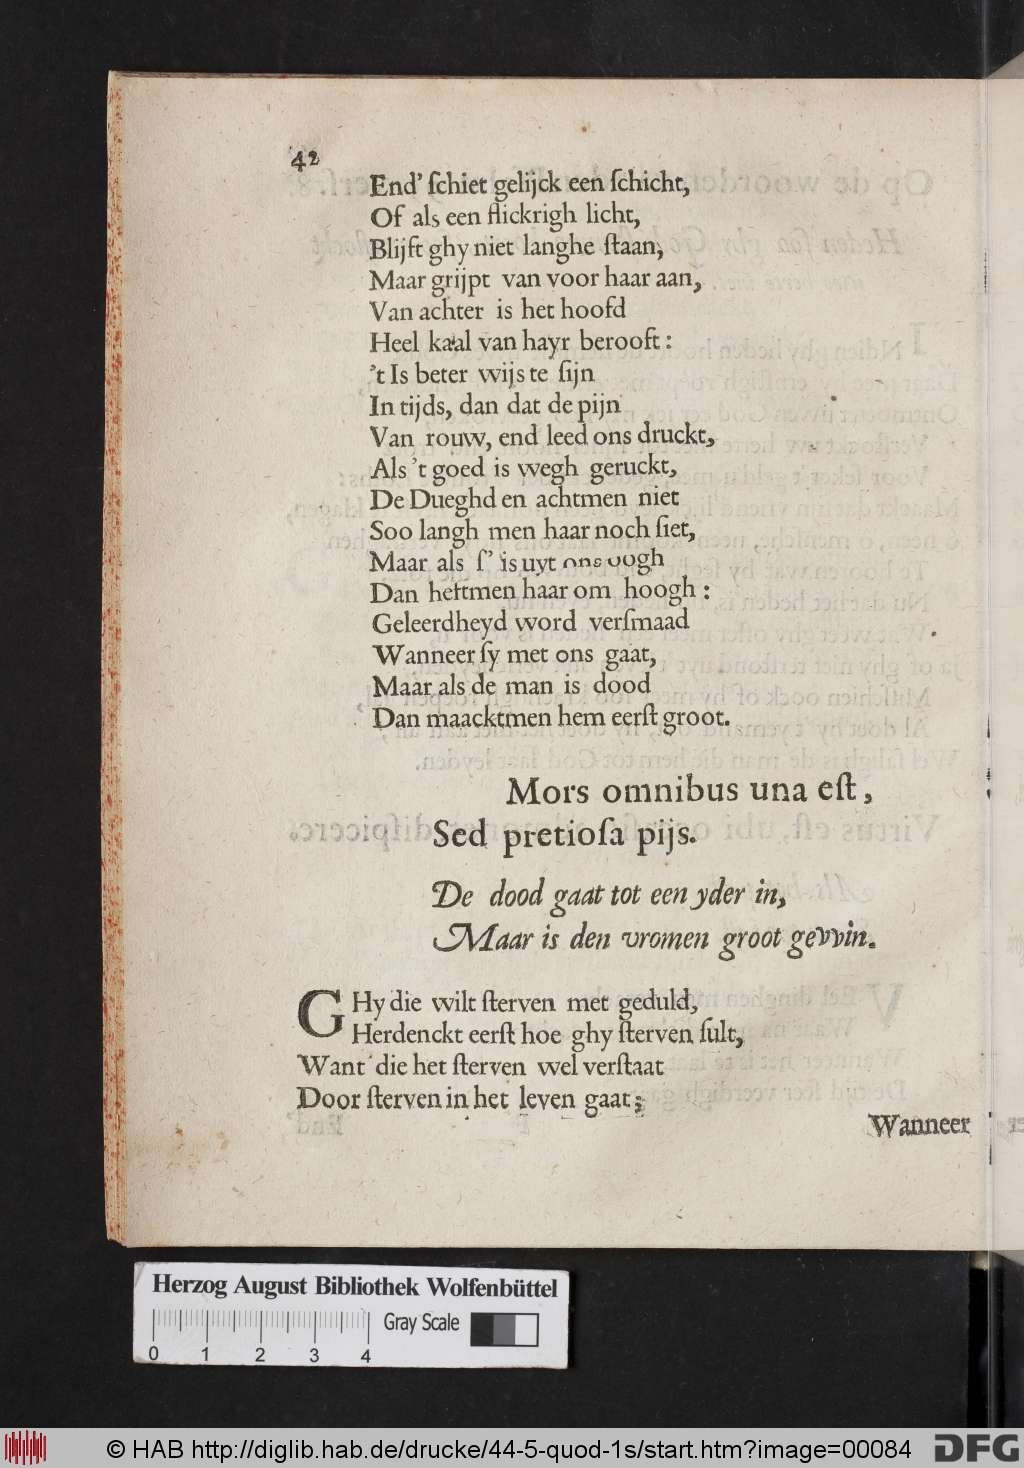 42
End’ ſchiet gelijck een ſchicht,
Of als een flickrigh licht,
Blijft ghy niet langhe ſtaan,
Maar grijpt van voor haar aan,
Van achter is het hoofd
Heel kaal van hayr berooft:
’t Is beter wijs te ſijn
In tijds, dan dat de pijn
Van rouw, end leed ons druckt,
Als ’t goed is wegh geruckt,
De Dueghd en achtmen niet
Soo langh men haar noch ſiet,
Maar als ſ’ is uyt ons oogh
Dan heftmen haar om hoogh:
Geleerdheyd word verſmaad
Wanneer ſy met ons gaat,
Maar als de man is dood
Dan maacktmen hem eerſt groot.
Mors omnibus una eſt,
Sed pretioſa pijs.
De dood gaat tot een yder in,
Maar is den vromen groot gevvin.
GHy die wilt ſterven met geduld,
Herdenckt eerſt hoe ghy ſterven ſult,
Want die het ſterven wel verſtaat
Door ſterven in het leven gaat;
Wanneer
Herzog August Bibliothek Wolfenbüttel
Gray Scale
0 1 2 3 4
© HAB http://diglib.hab.de/drucke/44-5-quod-1s/start.htm?image=00084
DFG